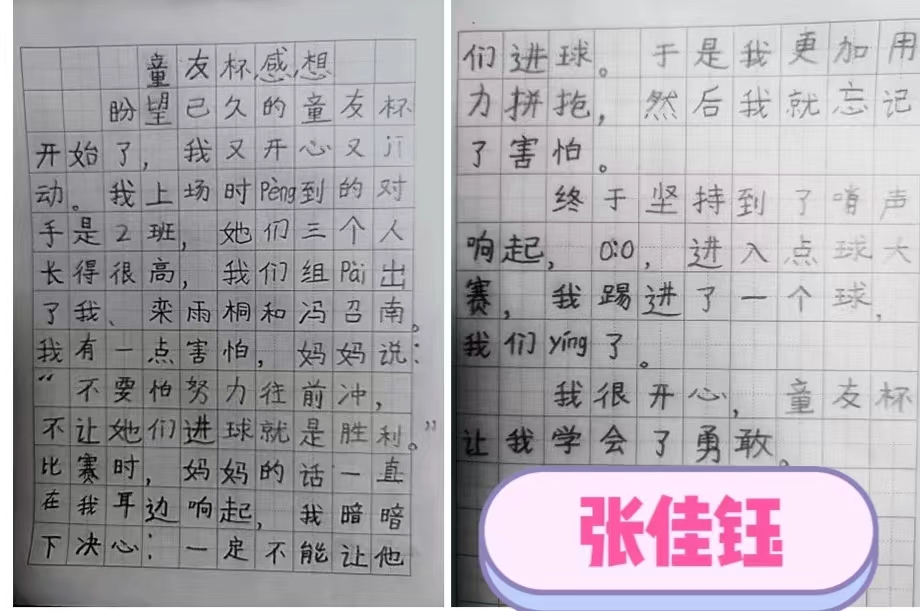 童友杯感想
盼望已久的童友杯
开始了，我又开心又jī
动。我上场时pèng到的对
手是2班，她们三个人
长得很高，我们组pài出
了我、栾雨桐和冯召南。
我有一点害怕，妈妈说：
“不要怕努力往前冲，
不让她们进球就是胜利。”
比赛时，妈妈的话一直
在我耳边响起，我暗暗
下决心：一定不能让他
们进球。于是我更加用
力拼抢，然后我就忘记
了害怕。
终于坚持到了哨声
响起，0:0，进入点球大
赛，我踢进了一个球，
我们yíng了。
我很开心，童友杯
让我学会了勇敢。
张佳钰